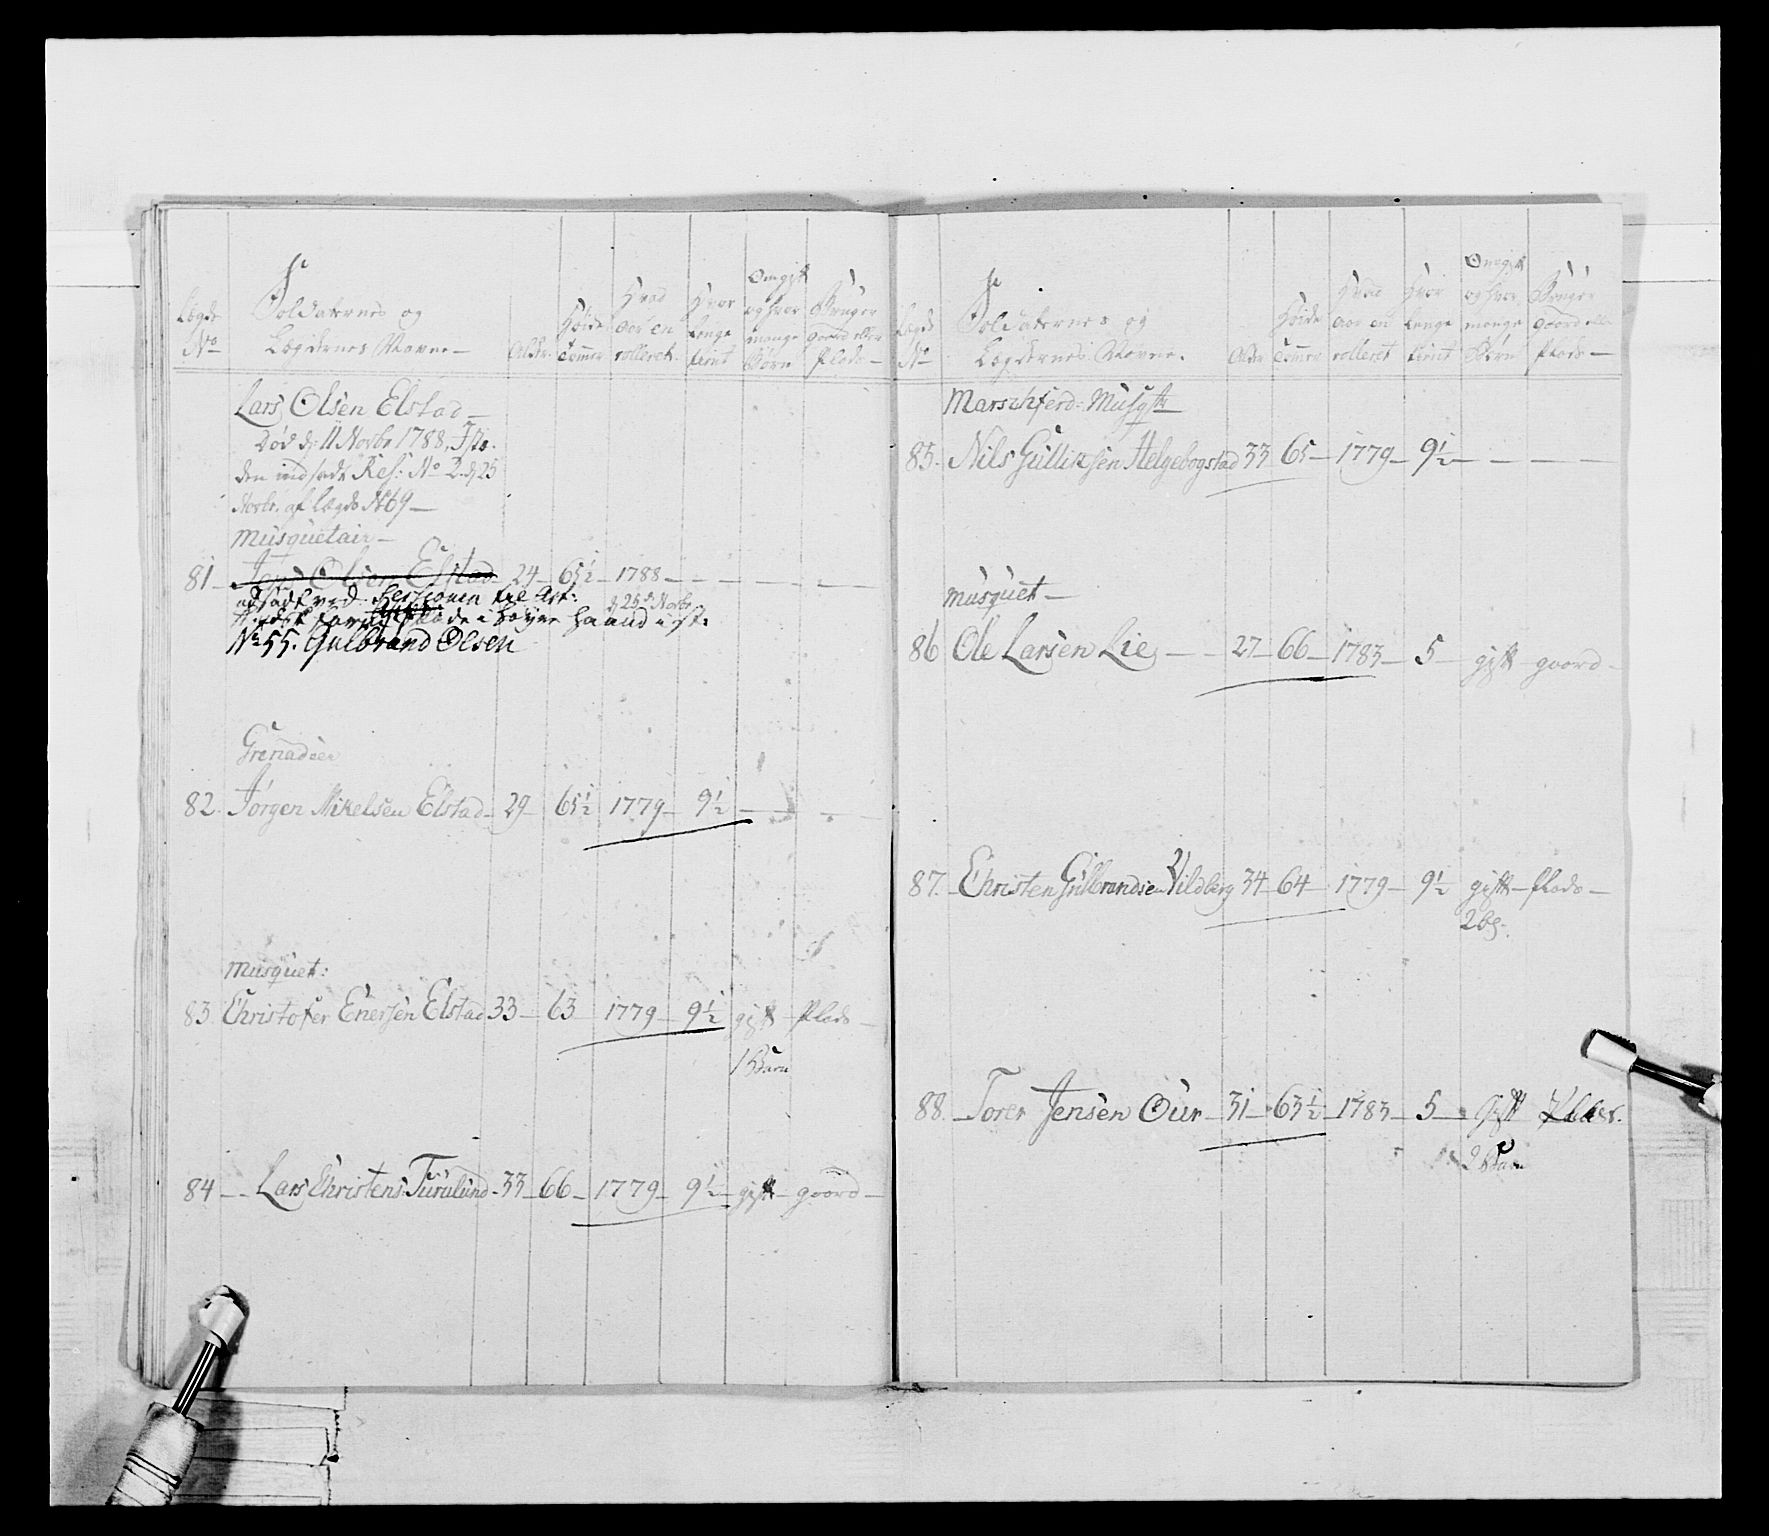 Lægds No
Soldaternes og Lægdernes Navne
Alder
Høide Tommer
Hvad aar en rolleret
Hvor lenge tient
Om gift og hvor mange Børn
Bruger gaard eller Plads
Lars Olsen Elstad
Død d: 11 Novbr 1788.
den indsadt Res: No 2. d: 25
Novbr. af Lægds No 69
Musquetair
81 Olsen Elstad 24 65½ 1788
d 25de Novbr
ved Sessionen til Art:
i høyre haand
No 55. Gulbrand Olsen
Grenadeer
82. Jørgen Mikelsen Elstad 29 65½ 1779 9½
Musquet:
83. Christofer Enersen Elstad 33 63 1779 9½ gift Plads
1 Barn
84 Lars Christens: Turulund 33 66 1779 9½ gift gaard
Lægds No
Soldaternes og Lægdernes Navne.
Alder
Høide Tommer
Hvad aar en rolleret
Hvor lenge tient
Om gift og hvor mange Børn
Bruger gaard elle Plads
Marschferd: Musqt
85. Nils Gulliksen Helgebogstad 33 65 1779 9½
Musquet
86 Ole Larsen Lie 27 66 1783 5 gift gaard
87. Christen Gulbrandsen Vildberg 34 64 1779 9½ gift Plads
2 b
88. Torer Jensen Our 31 63½ 1783 5 Gift
2 Barn